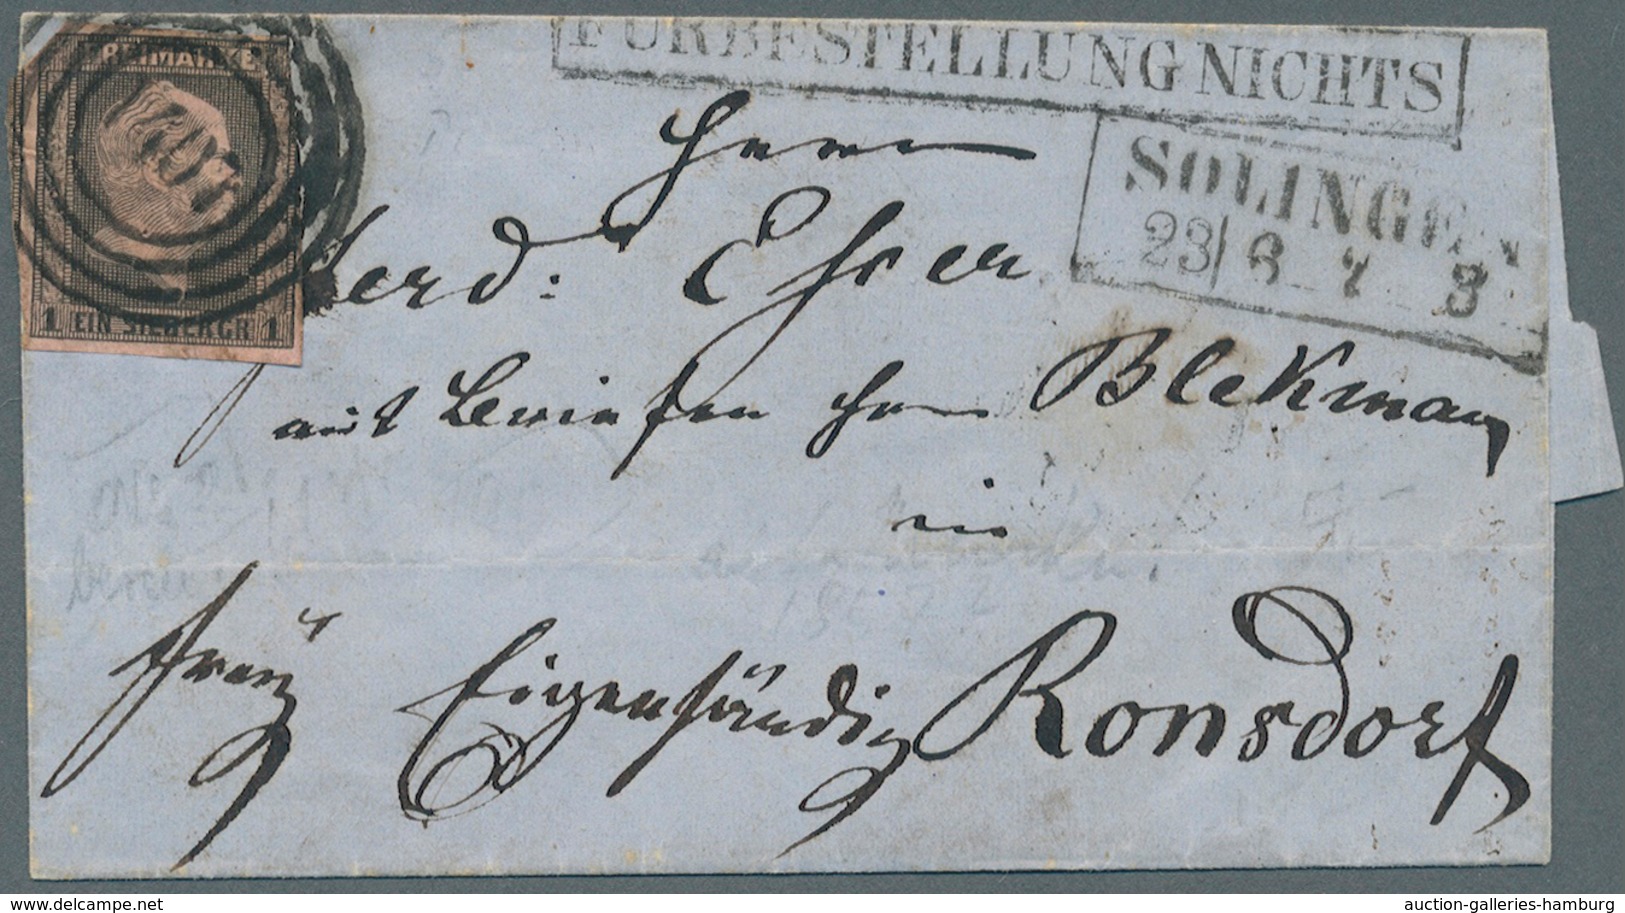 FREIMARKE
1 EIN SILBERGR 1
FÜR BESTELLUNG NICHTS
SOLINGEN
23/6 7 - 8
Herrn
Ferd: Ehrer
mit Briefen Herrn Blekmann
in
franz Eigenhändig Ronsdorf
auction-galleries-hamburg